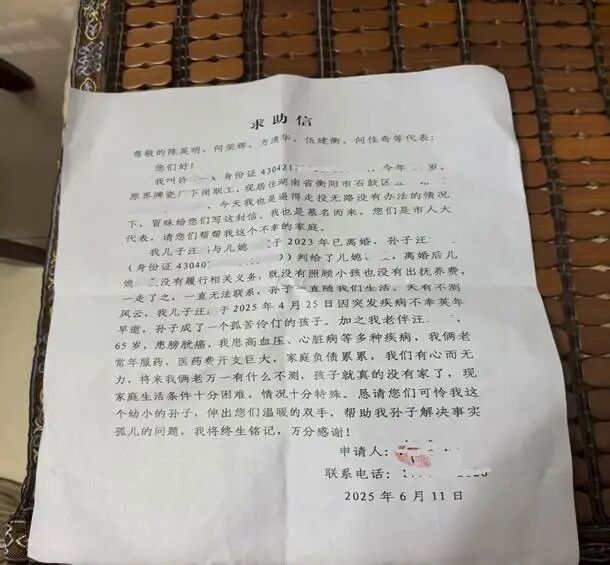 求助信
尊敬的陈英明、何荣辉、方清华、伍建衡、何佳奇等代表：
您们好！
我叫许 身份证 430421 今年 岁，
原界牌瓷厂下岗职工，现居住湖南省衡阳市石鼓区
今天我也是逼得走投无路没有办法的情况
下，冒昧给您们写这封信。我也是慕名而来，您们是市人大
代表，请您们帮帮我这个不幸的家庭。
我儿子汪 与儿媳 于 2023 年已离婚，孙子汪
（身份证 43040 ）判给了儿媳 ，离婚后儿
媳 没有履行相关义务，既没有照顾小孩也没有出抚养费，
一走了之，一直无法联系，孙子一直随我们生活。天有不测
风云，我儿子汪 于 2025 年 4 月 25 日因突发疾病不幸英年
早逝，孙子成了一个孤苦伶仃的孩子。加之我老伴汪
65 岁，患膀胱癌，我患高血压、心脏病等多种疾病，我俩老
常年服药，医药费开支巨大，家庭负债累累，我们有心而无
力，将来我俩老万一有什么不测，孩子就真的没有家了，现
家庭生活条件十分困难，情况十分特殊。恳请您们可怜我这
个幼小的孙子，伸出您们温暖的双手，帮助我孙子解决事实
孤儿的问题，我将终生铭记，万分感谢！
申请人：
联系电话：
2025 年 6 月 11 日